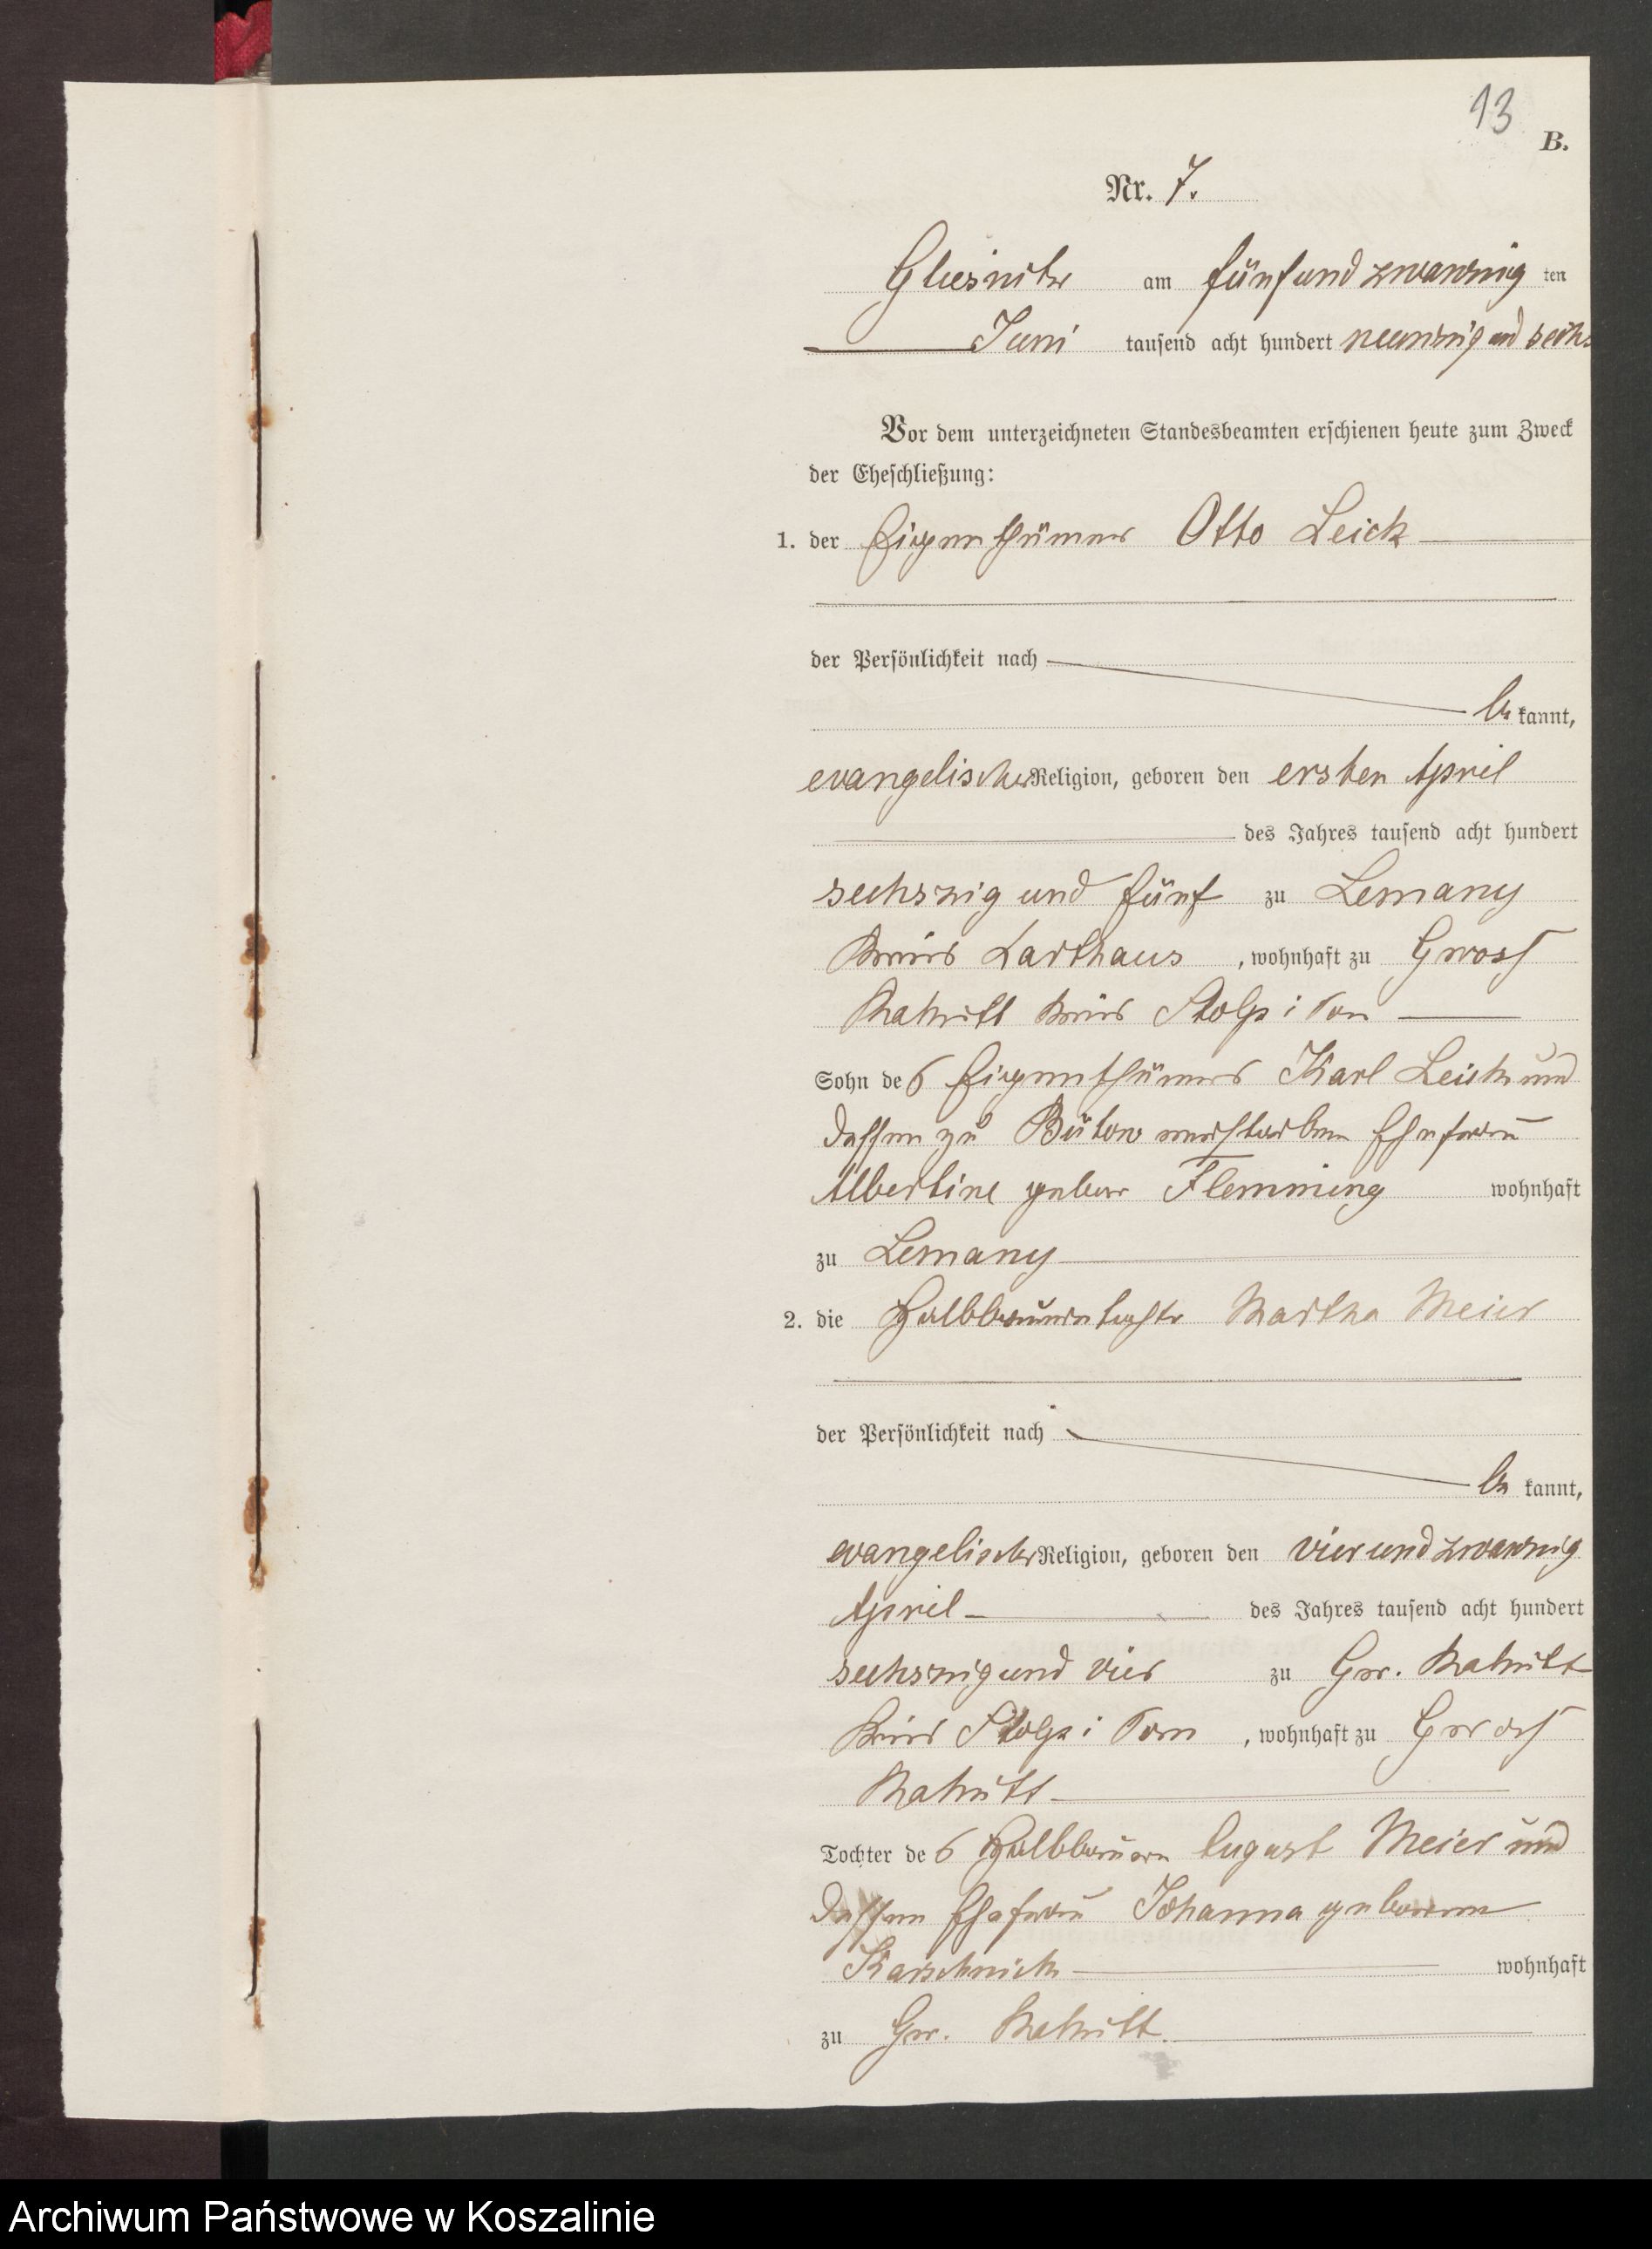 13
B.
Nr. 7.
Gliesnitz am fünfundzwanzig ten
Juni tausend acht hundert neunzig und sechs
Vor dem unterzeichneten Standesbeamten erschienen heute zum Zweck
der Eheschließung:
1. der Eigenthümer Otto Leick
der Persönlichkeit nach
be kannt,
evangelischer Religion, geboren den ersten April
des Jahres tausend acht hundert
sechszig und fünf zu Lemany
Kreis Karthaus, wohnhaft zu Gross
Rakitt Kreis Stolp i Pom
Sohn des Eigenthümers Karl Leick und
dessen zu Bütow verstorben Ehefrau
Albertine gebor Flemming wohnhaft
zu Lemany
2. die Halbbauerntochter Martha Meier
der Persönlichkeit nach
be kannt,
evangelischer Religion, geboren den vierundzwanzig
April des Jahres tausend acht hundert
sechszig und vier zu Gr. Rakitt
Kreis Stolp i Pom, wohnhaft zu Gross
Rakitt
Tochter des Halbbauern August Meier und
dessen Ehefrau Johanna geborenen
Karschnick wohnhaft
zu Gr. Rakitt.
Archiwum Państwowe w Koszalinie